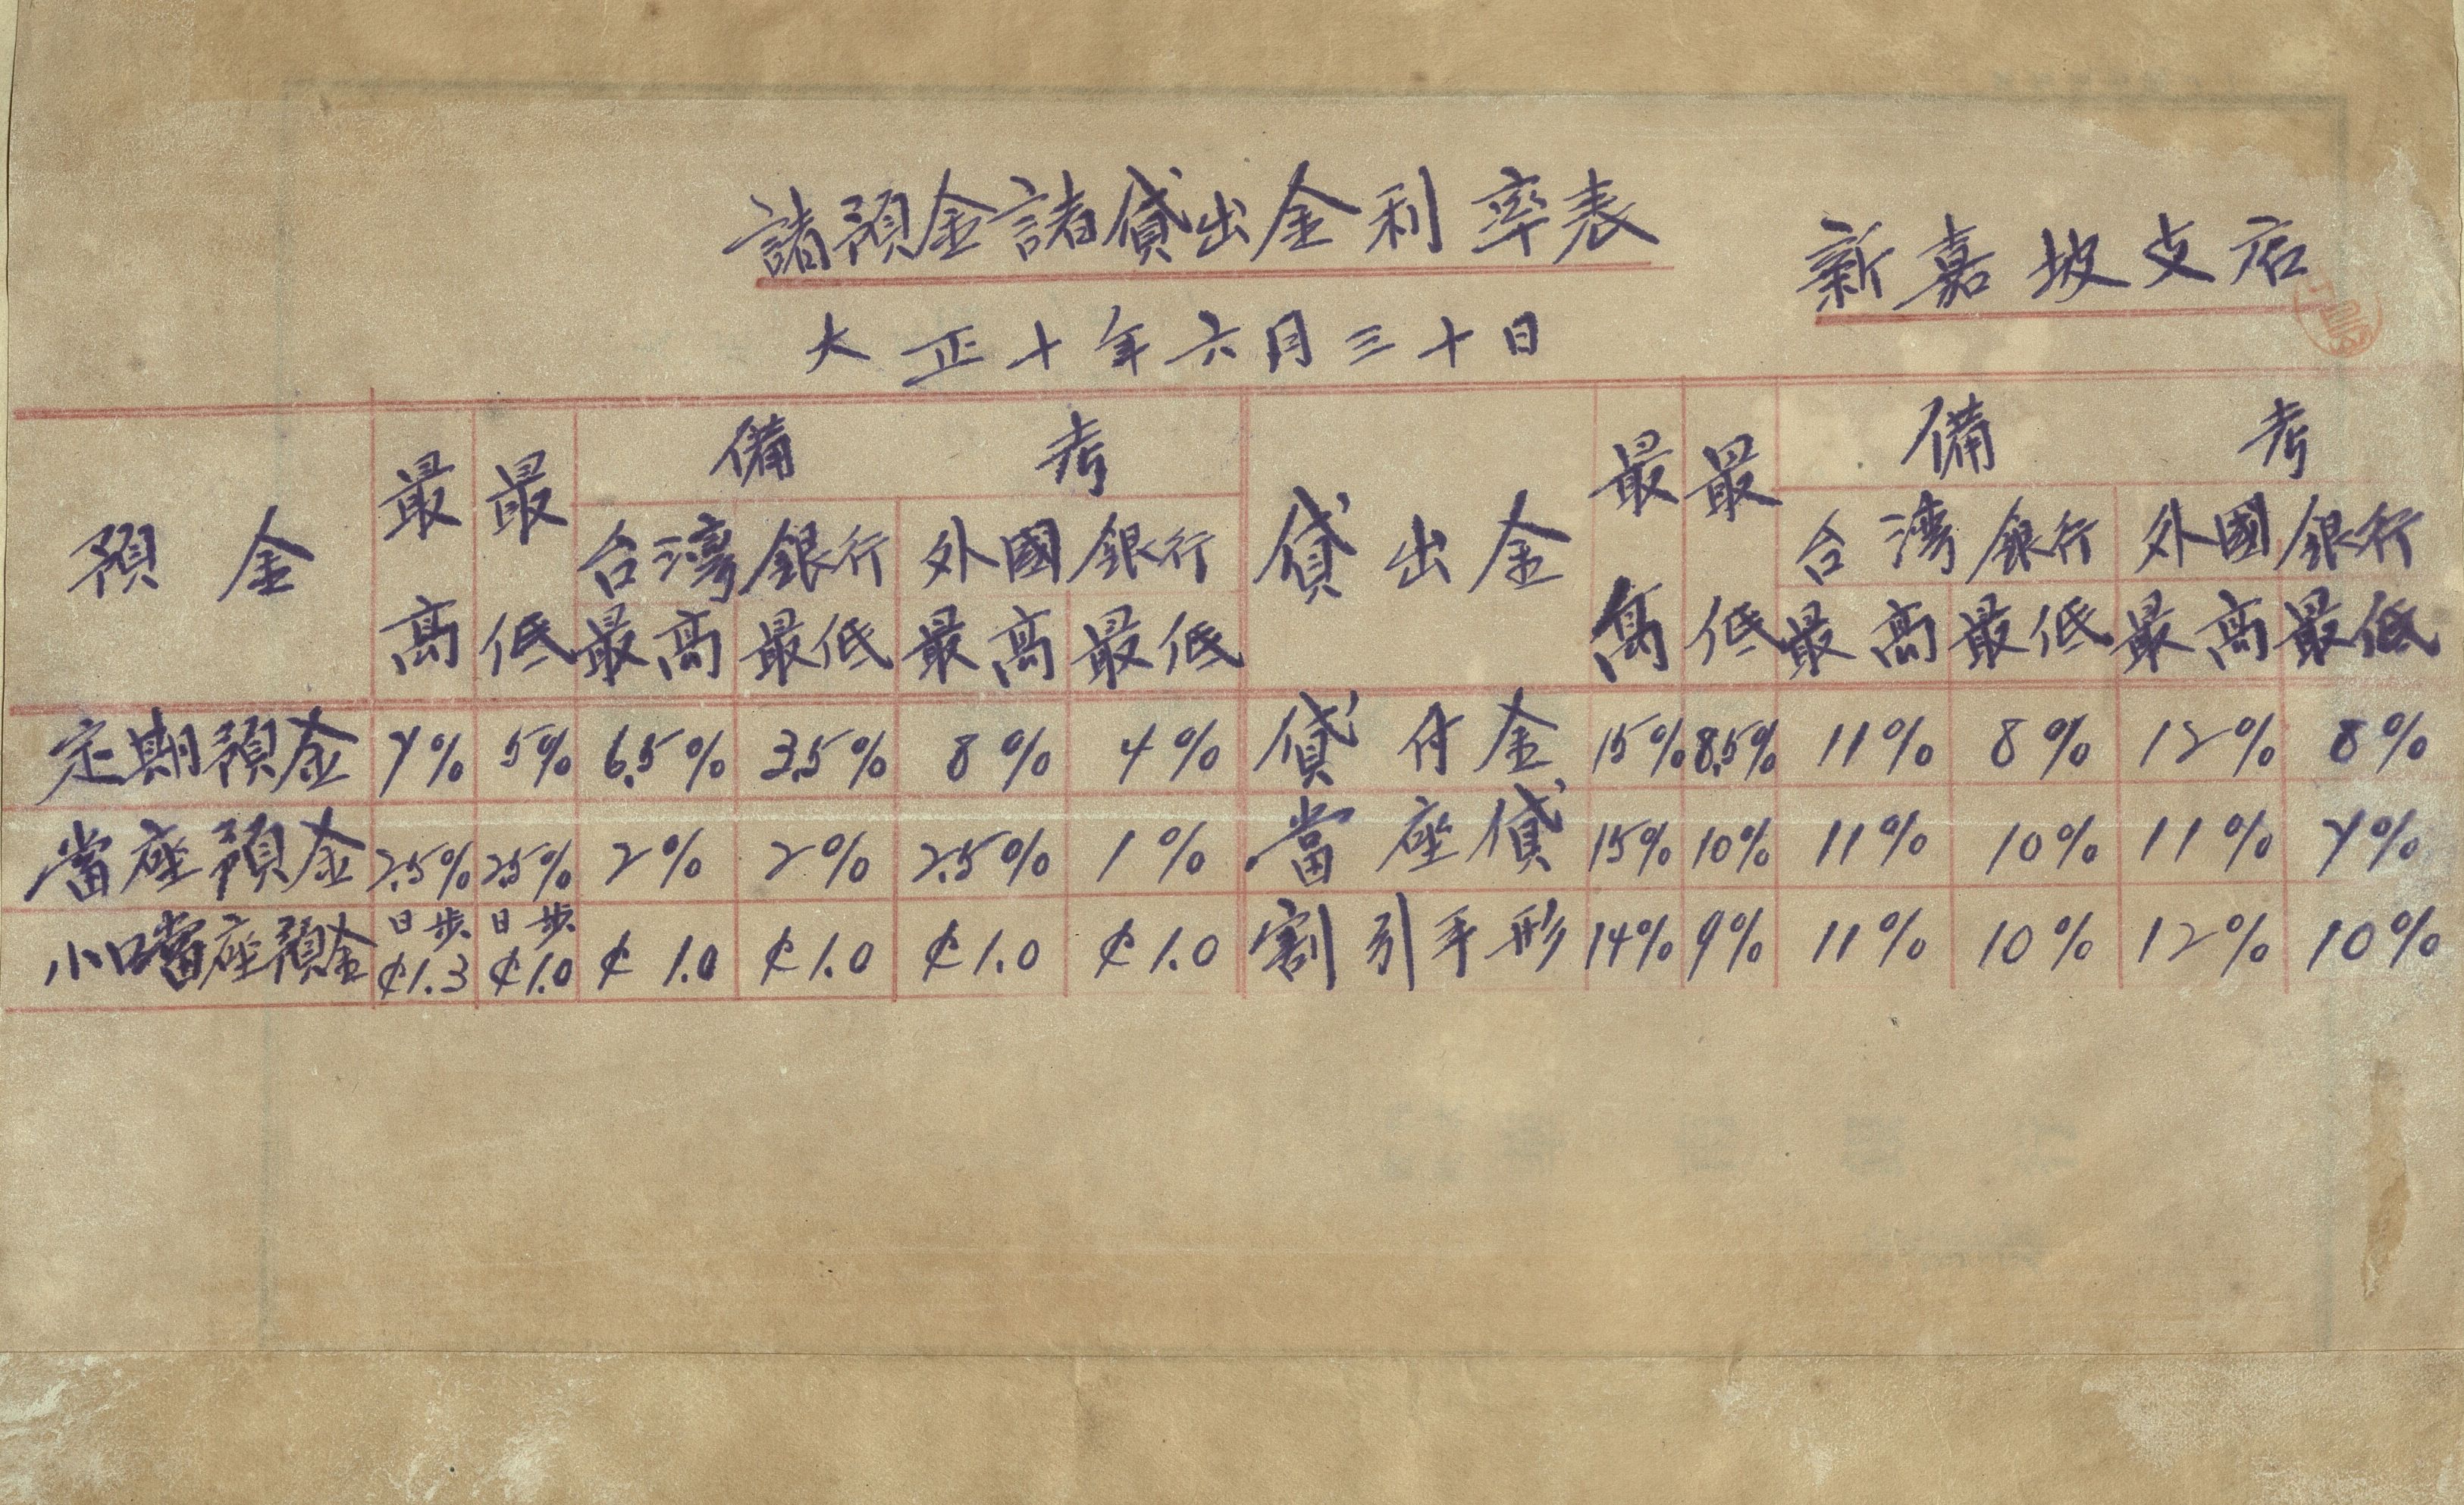 諸預金諸貸出金利率表
新嘉坡支店
大正十年六月三十日
預金 最高 最低 備考 貸出金 最高 最低 備考
台湾銀行 外國銀行 台湾銀行 外國銀行
最高 最低 最高 最低 最高 最低 最高 最低
定期預金 7% 5% 6.5% 3.5% 8% 4% 貸付金 15% 8.5% 11% 8% 12% 8%
當座預金 2.5% 2.5% 2% 2% 2.5% 1% 當座貸 15% 10% 11% 10% 11% 7%
小口當座預金 日歩¢1.3 日歩¢1.0 ¢1.0 ¢1.0 ¢1.0 ¢1.0 割引手形 14% 9% 11% 10% 12% 10%